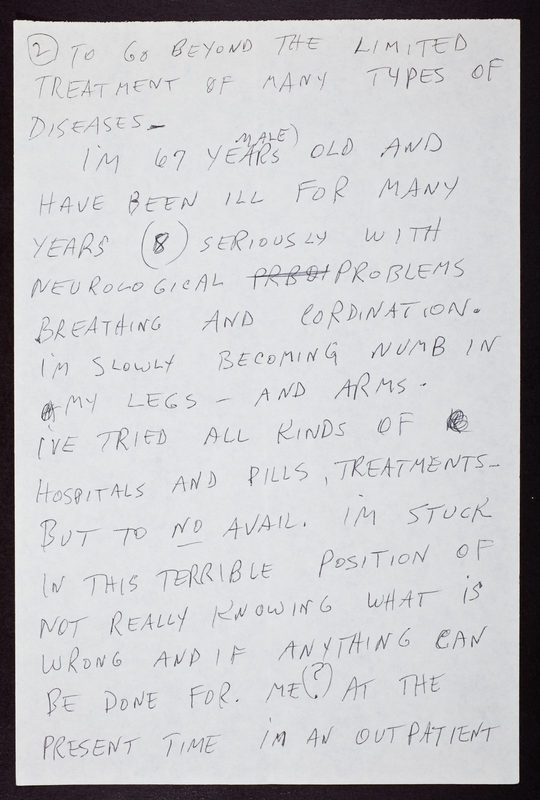 (2) TO GO BEYOND THE LIMITED
TREATMENT OF MANY TYPES OF
DISEASES—
I'M 67 YEARS MALE) OLD AND
HAVE BEEN ILL FOR MANY
YEARS (8) SERIOUSLY WITH
NEUROLOGICAL PROBLEMS
BREATHING AND CORDINATION.
I'M SLOWLY BECOMING NUMB IN
MY LEGS – AND ARMS.
I'VE TRIED ALL KINDS OF
HOSPITALS AND PILLS, TREATMENTS–
BUT TO NO AVAIL. I'M STUCK
IN THIS TERRIBLE POSITION OF
NOT REALLY KNOWING WHAT IS
WRONG AND IF ANYTHING CAN
BE DONE FOR. ME(?) AT THE
PRESENT TIME I'M AN OUTPATIENT